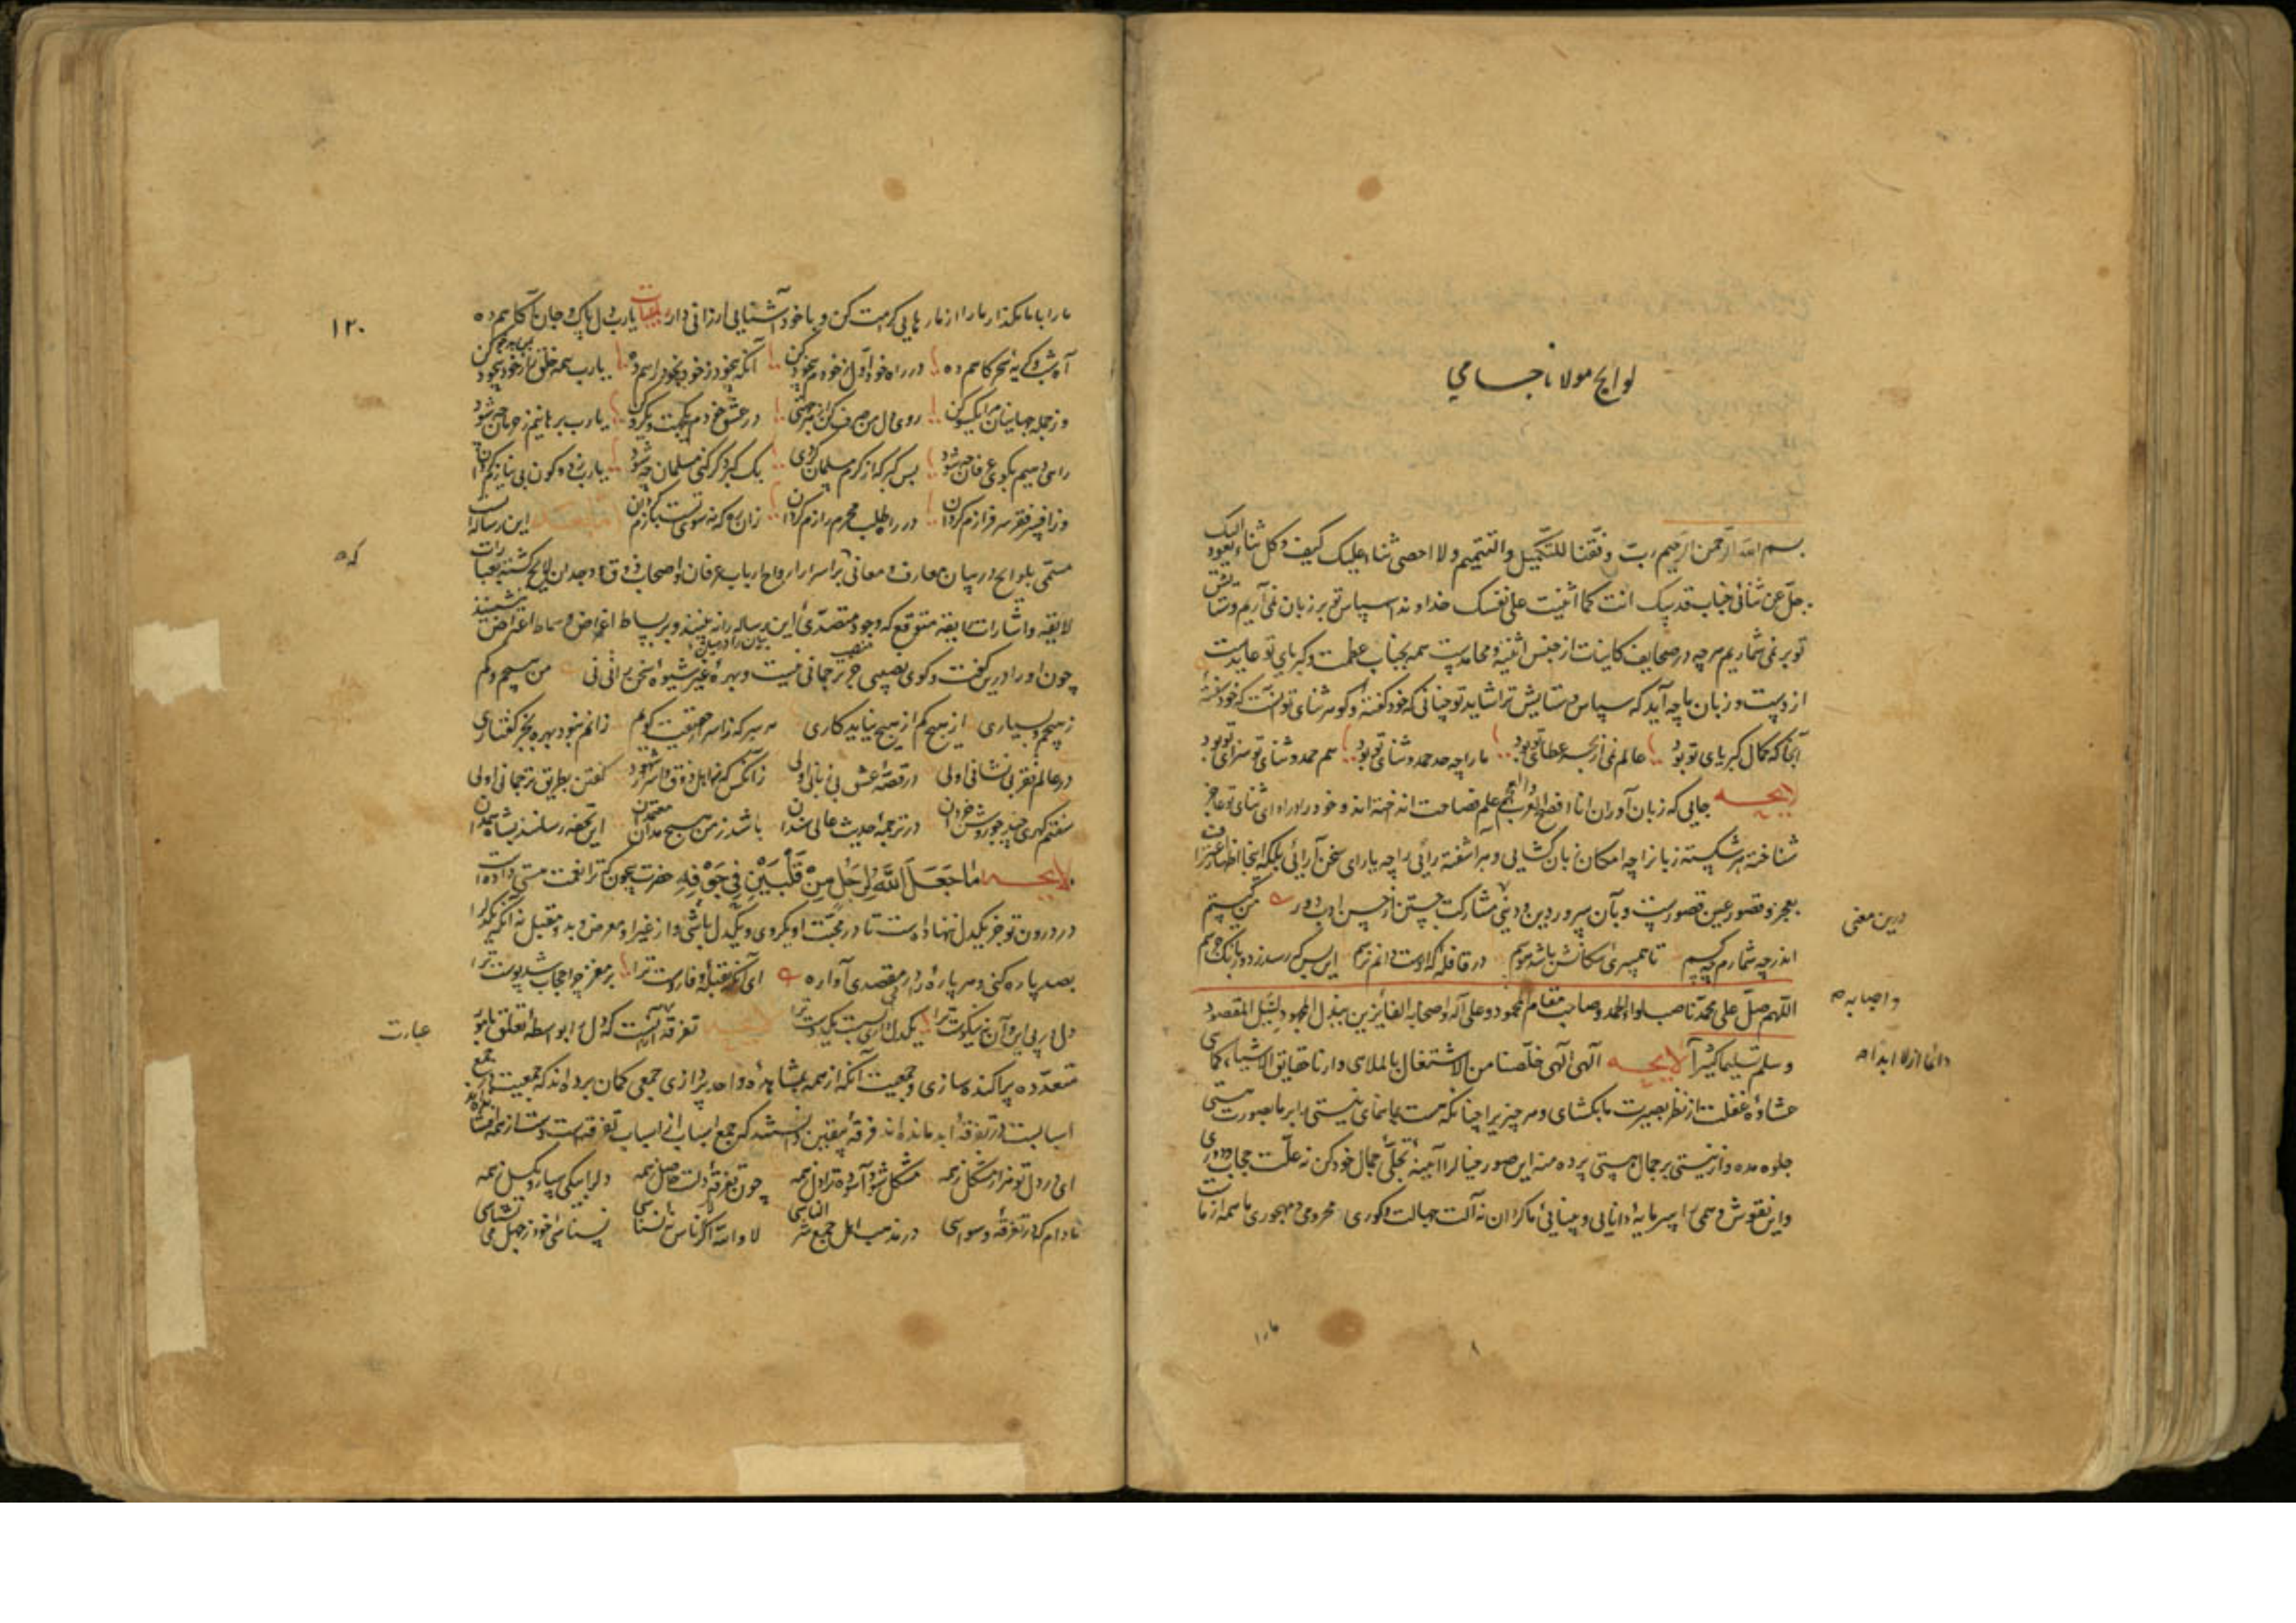 لوایح مولانا جامی
بسم الله الرحمن الرحیم رب وفقنا للتکمیل والتتمیم ولا احصی ثناء علیک کیف وکل ثناء الیک یعود
جل عن ثنائی جناب قدسک انت کما اثنیت علی نفسک خداوندا سپاس تو بر زبان نمی آریم و ستایش
تو بر تو نمی شماریم هرچه در صحایف کاینات از جنس اثنیه و محامدست همه بجناب عظمت و کبریای تو عایدست
از دست و زبان ما چه آید که سپاس و ستایش ترا شاید تو چنانی که خود گفته و گوهر ثنای تو آنست که خود سفته
آنجا که کمال کبریای تو بود عالم نمی از بحر عطای تو بود ما را چه حد حمد و ثنای تو بود هم حمد و ثنای تو سزای تو بود
لایحه جایی که زبان آور انا افصح العرب والعجم علم فصاحت انداخته اند و خود را در ادای ثنای تو عاجز
شناخته هر شکسته زبانرا چه امکان زبان گشایی و هر آشفته رائی را چه یارای سخن آرائی بلکه اینجا اظهار اعتراف
بعجز و قصور عین قصورست و بآن سرور دین و دنیی مشارکت جستن از حسن ادب دور من کیستم
اندر چه شمارم چه کسم تا همسری سگانش باشد هوسم در قافله که اوست دانم نرسم این بس که رسد ز دور بانگ جرسم
اللهم صل علی محمد ناصب لواء الحمد وصاحب مقام المحمود وعلی آله واصحابه الفائزین ببذل المجهود لنیل المقصود
وسلم تسلیما کثیرا لایحه الهی الهی خلصنا من الاشتغال بالملاهی وارنا حقایق الاشیاء کما هی
غشاوه غفلت از نظر بصیرت ما بکشای و هر چیز را چنانکه هست بما بنمای نیستی را بر ما بصورت هستی
جلوه مده و از نیستی بر جمال هستی پرده منه این صور خیالی را آیینه تجلی جمال خود کن نه علت حجاب و دوری
و این نقوش وهمی را سرمایه دانایی و بینایی ما گردان نه آلت جهالت و کوری محرومی و مهجوری ما همه از ماست
درین معنی
واصحابه
دائما ازلا ابدا
ما را
ما را بما مگذار ما را از ما رهایی کرامت کن و با خود آشنایی ارزانی دار یا رب دل پاک و جان آگاهم ده
آه شب و گریه سحرگاهم ده در راه خود اول ز خودم بیخود کن آنگه بیخود ز خود بخود راهم ده یا رب همه خلق را ز خود بدخو کن
وز جمله جهانیان مرا یکسو کن روی دل من صرف کن از هر جهتی در عشق خودم یکجهت و یکرو کن یا رب برهانیم ز حرمان چه شود
راهی دهیم بکوی عرفان چه شود بس گبر که از کرم مسلمان کردی یک گبر دگر کنی مسلمان چه شود یا رب ز دو کون بی نیازم گردان
وز افسر فقر سرفرازم گردان در راه طلب محرم رازم گردان زان ره که نه سوی تست بازم گردان این رساله ایست
مسمی بلوایح در بیان معارف و معانی که بر اسرار ارواح ارباب عرفان و اصحاب ذوق و وجدان لایح گشته بعبارات
لایقه و اشارات رایقه متوقع که وجود متصدی این رساله را نه بینند و بر بساط اعراض و سماط اعتراض ننشینند
چون او را درین گفت و گوی نصیبی جز منصب ترجمانی نیست و بهره غیر شیوه سخن رانی نی من هیچم و کم
ز هیچ هم بسیاری از هیچ و کم از هیچ نیاید کاری هر سر که ز اسرار حقیقت گویم زانم نبود بهره بجز گفتاری
در عالم فقر بی نشانی اولی در قصه عشق بی زبانی اولی زانکس که نه اهل ذوق و اسرار شهود گفتن بطریق ترجمانی اولی
سفتم گهری چند چو روشن خردان در ترجمه حدیث عالی سندان باشد ز من هیچ مدان معتمدان این تحفه رسانند بشاه همدان
لایحه ما جعل الله لرجل من قلبین فی جوفه حضرت بیچون که ترا نعمت هستی داده است
در درون تو جز یکدل ننهاده است تا در محبت او یکروی و یکدل باشی و از غیر او معرض و بدو مقبل نه آنکه یکدل را
بصد پاره کنی و هر پاره را در پی مقصدی آواره ای آنکه بقبله وفا روست ترا بر مغز چرا حجاب شد پوست ترا
دل در پی این و آن نه نیکوست ترا یکدل داری بسست یکدوست ترا لایحه تفرقه آنست که دل را بواسطه تعلق بامور
متعدده پراکنده سازی و جمعیت آنکه از همه بمشاهده واحد پردازی جمعی گمان برده اند که جمعیت در جمع
اسبابست در تفرقه ابد مانده اند فرقه بیقین دانستند که جمع اسباب از اسباب تفرقه است دست از همه افشاندند
ای در دل تو هزار مشکل ز همه مشکل شود آسوده ترا دل ز همه چون تفرقه دلست حاصل ز همه دل را بیکی سپار و بگسل ز همه
مادام که در تفرقه و وسواسی در مذهب اهل جمع شر الناسی لا والله اگر ناس نه نسناسی نسناسی خود ز جهل می نشناسی
۱۲۰
که
عبارت